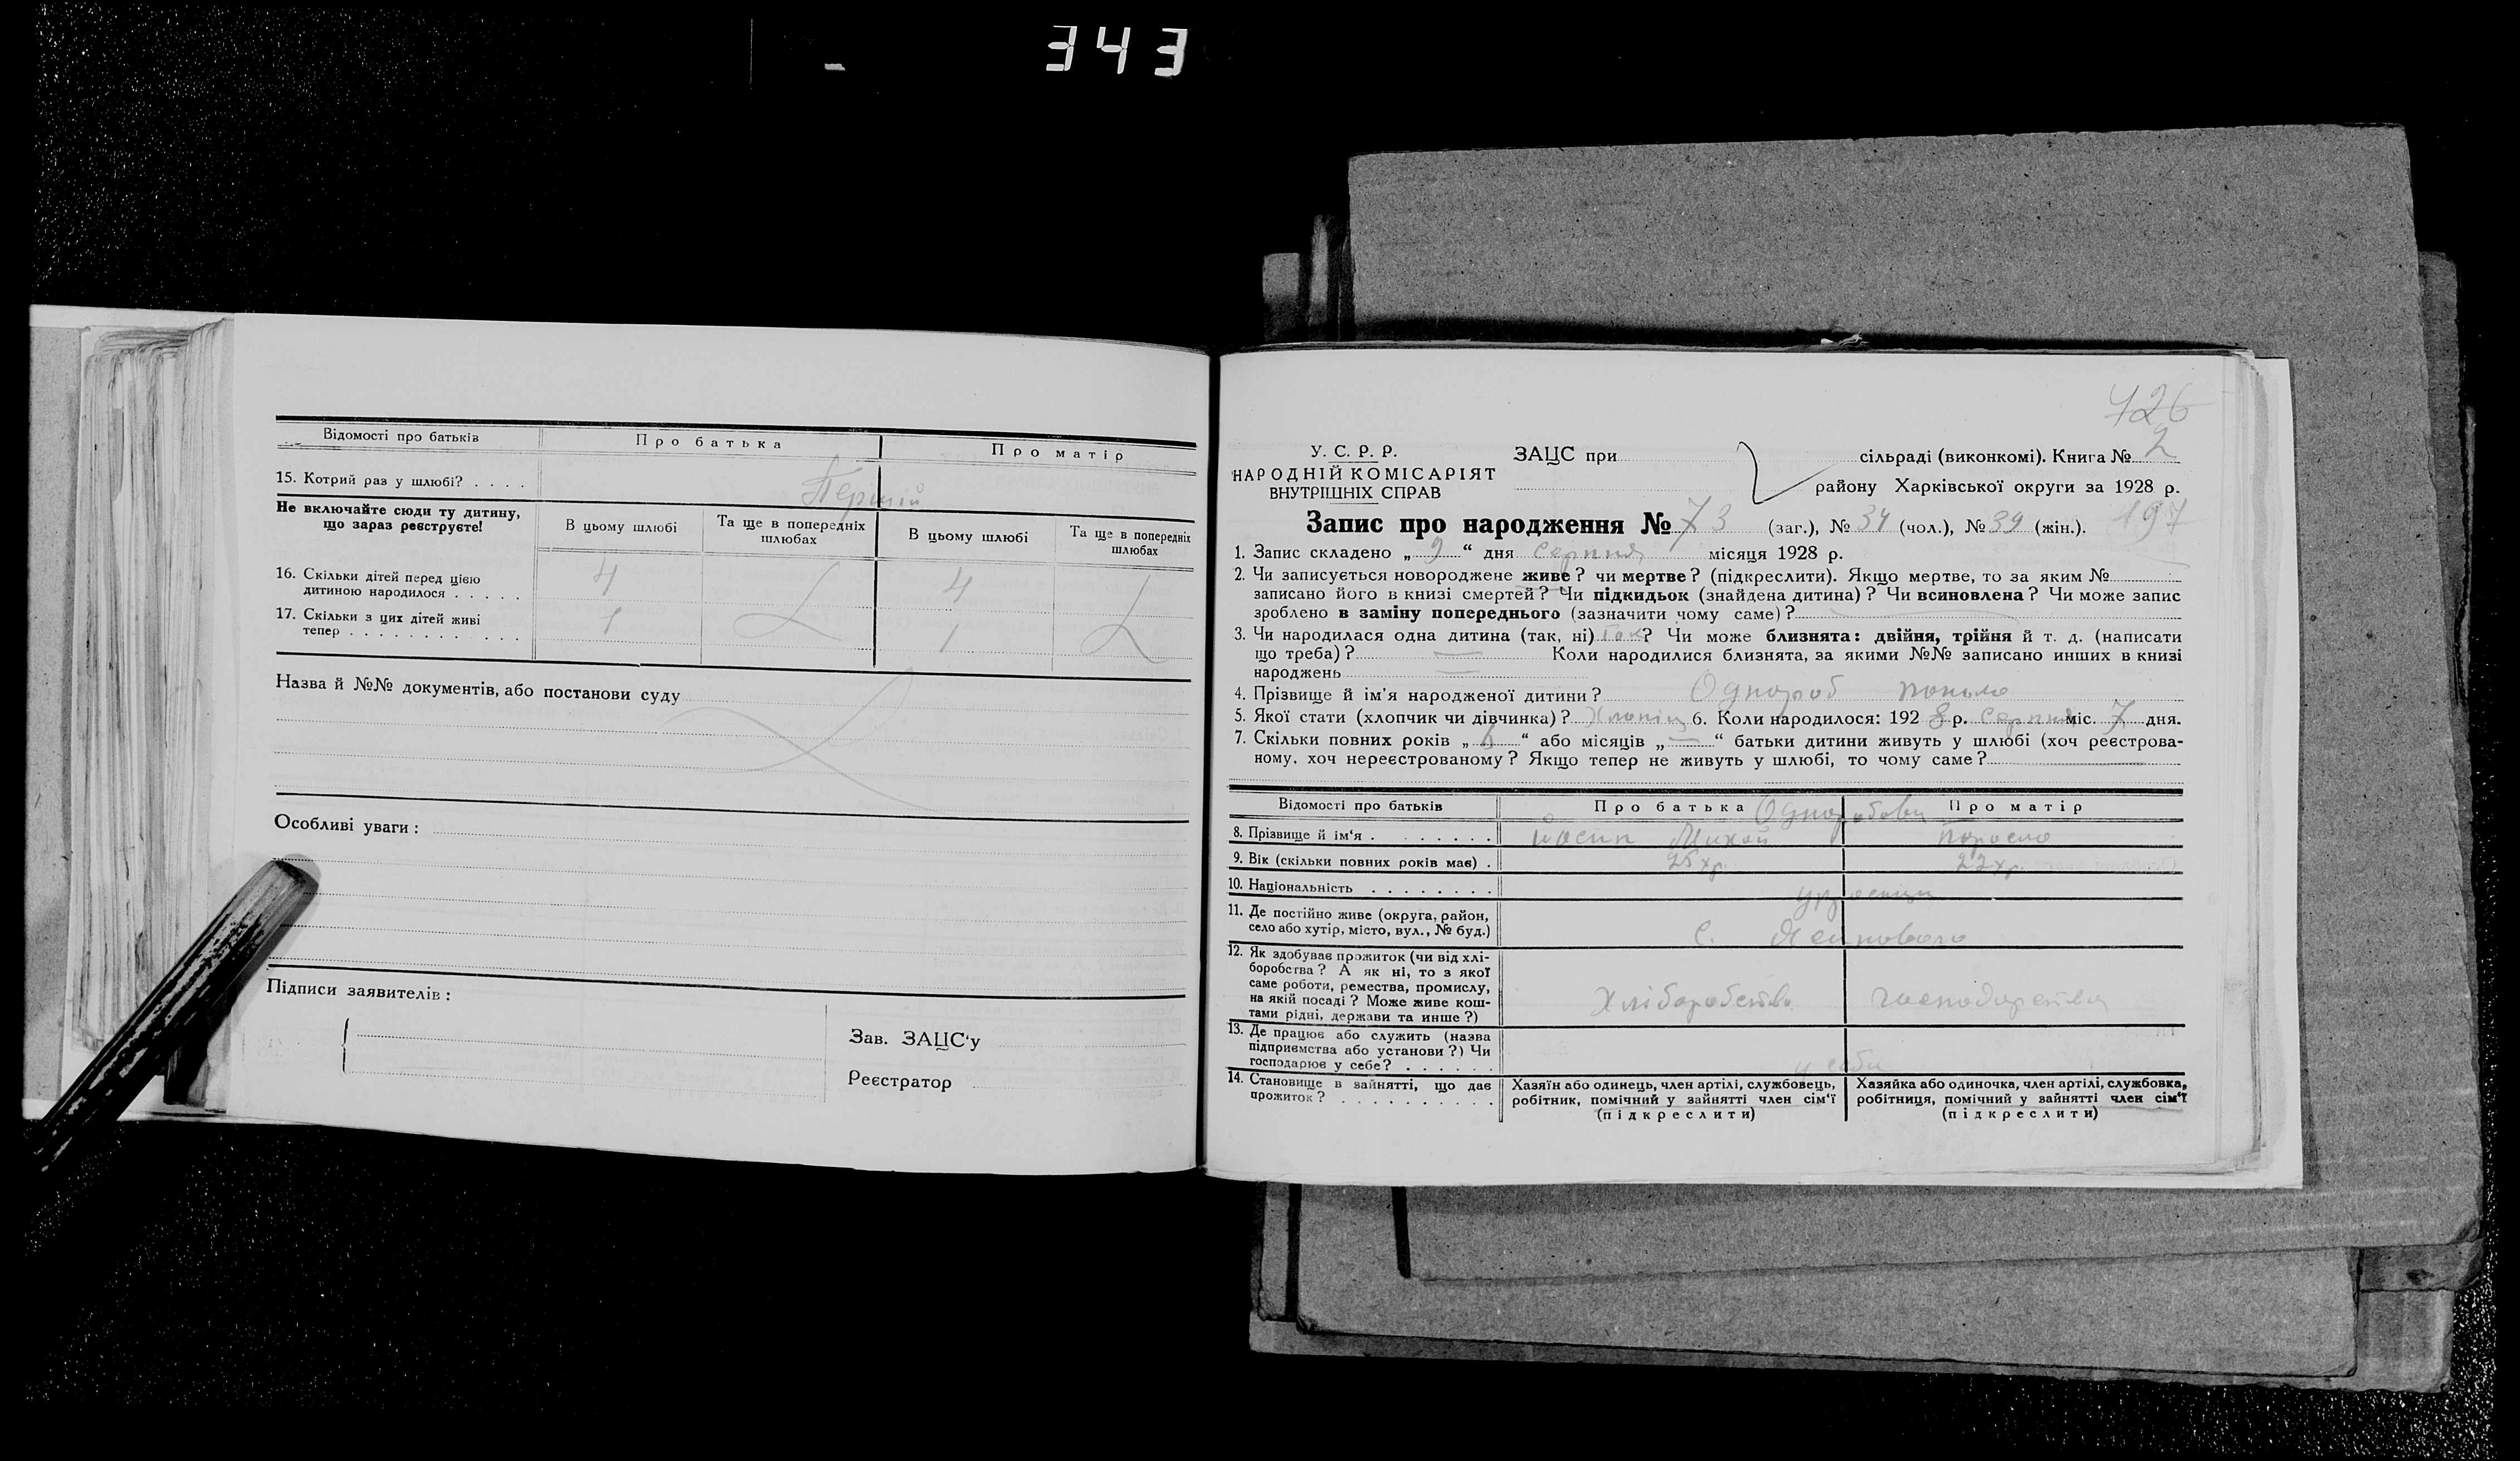 343
Відомості про батьків Про батька Про матір
15. Котрий раз у шлюбі? . . . . Перший
Не включайте сюди ту дитину, що зараз реєструєте!
В цьому шлюбі Та ще в попередніх шлюбах В цьому шлюбі Та ще в попередніх шлюбах
16. Скільки дітей перед цією
дитиною народилося . . . . . 4 4
17. Скільки з цих дітей живі
тепер . . . . . . . . . . . 1 1
Назва й №№ документів, або постанови суду
Особливі уваги :
Підписи заявителів :
Зав. ЗАЦС'у
Реєстратор
426
У. С. Р. Р.
НАРОДНІЙ КОМІСАРІЯТ
ВНУТРІШНІХ СПРАВ
ЗАЦС при сільраді (виконкомі). Книга № 2
району Харківської округи за 1928 р.
197
Запис про народження № 73 (заг.), № 34 (чол.), № 39 (жін.).
1. Запис складено „ 9 “ дня серпня місяця 1928 р.
2. Чи записується новороджене живе? чи мертве? (підкреслити). Якщо мертве, то за яким №
записано його в книзі смертей? Чи підкидьок (знайдена дитина)? Чи всиновлена? Чи може запис
зроблено в заміну попереднього (зазначити чому саме)?
3. Чи народилася одна дитина (так, ні) так? Чи може близнята: двійня, трійня й т. д. (написати
що треба)? — Коли народилися близнята, за якими №№ записано инших в книзі
народжень —
4. Прізвище й ім'я народженої дитини? Однороб
5. Якої стати (хлопчик чи дівчинка)? Хлопець 6. Коли народилося: 1928 р. Серпня міс. 7 дня.
7. Скільки повних років „ 6 “ або місяців „ — “ батьки дитини живуть у шлюбі (хоч реєстрова-
ному, хоч нереєстрованому? Якщо тепер не живуть у шлюбі, то чому саме?
Відомості про батьків Про батька Про матір
Однороbови
8. Прізвище й ім'я . . . . . . . . Йосип
9. Вік (скільки повних років має) . 25 22
10. Національність . . . . . . . . українці
11. Де постійно живе (округа, район,
село або хутір, місто, вул., № буд.) с.
12. Як здобуває прожиток (чи від хлі-
боробства? А як ні, то з якої
саме роботи, ремества, промислу,
на якій посаді? Може живе кош-
тами рідні, держави та инше?) Хліборобство господарства
13. Де працює або служить (назва
підприємства або установи?) Чи
господарює у себе? . . . . . . у себе
14. Становище в зайнятті, що дає
прожиток? . . . . . . . . . .
Хазяїн або одинець, член артілі, службовець,
робітник, помічний у зайнятті член сім'ї
(підкреслити)
Хазяйка або одиночка, член артілі, службовка,
робітниця, помічний у зайнятті член сім'ї
(підкреслити)